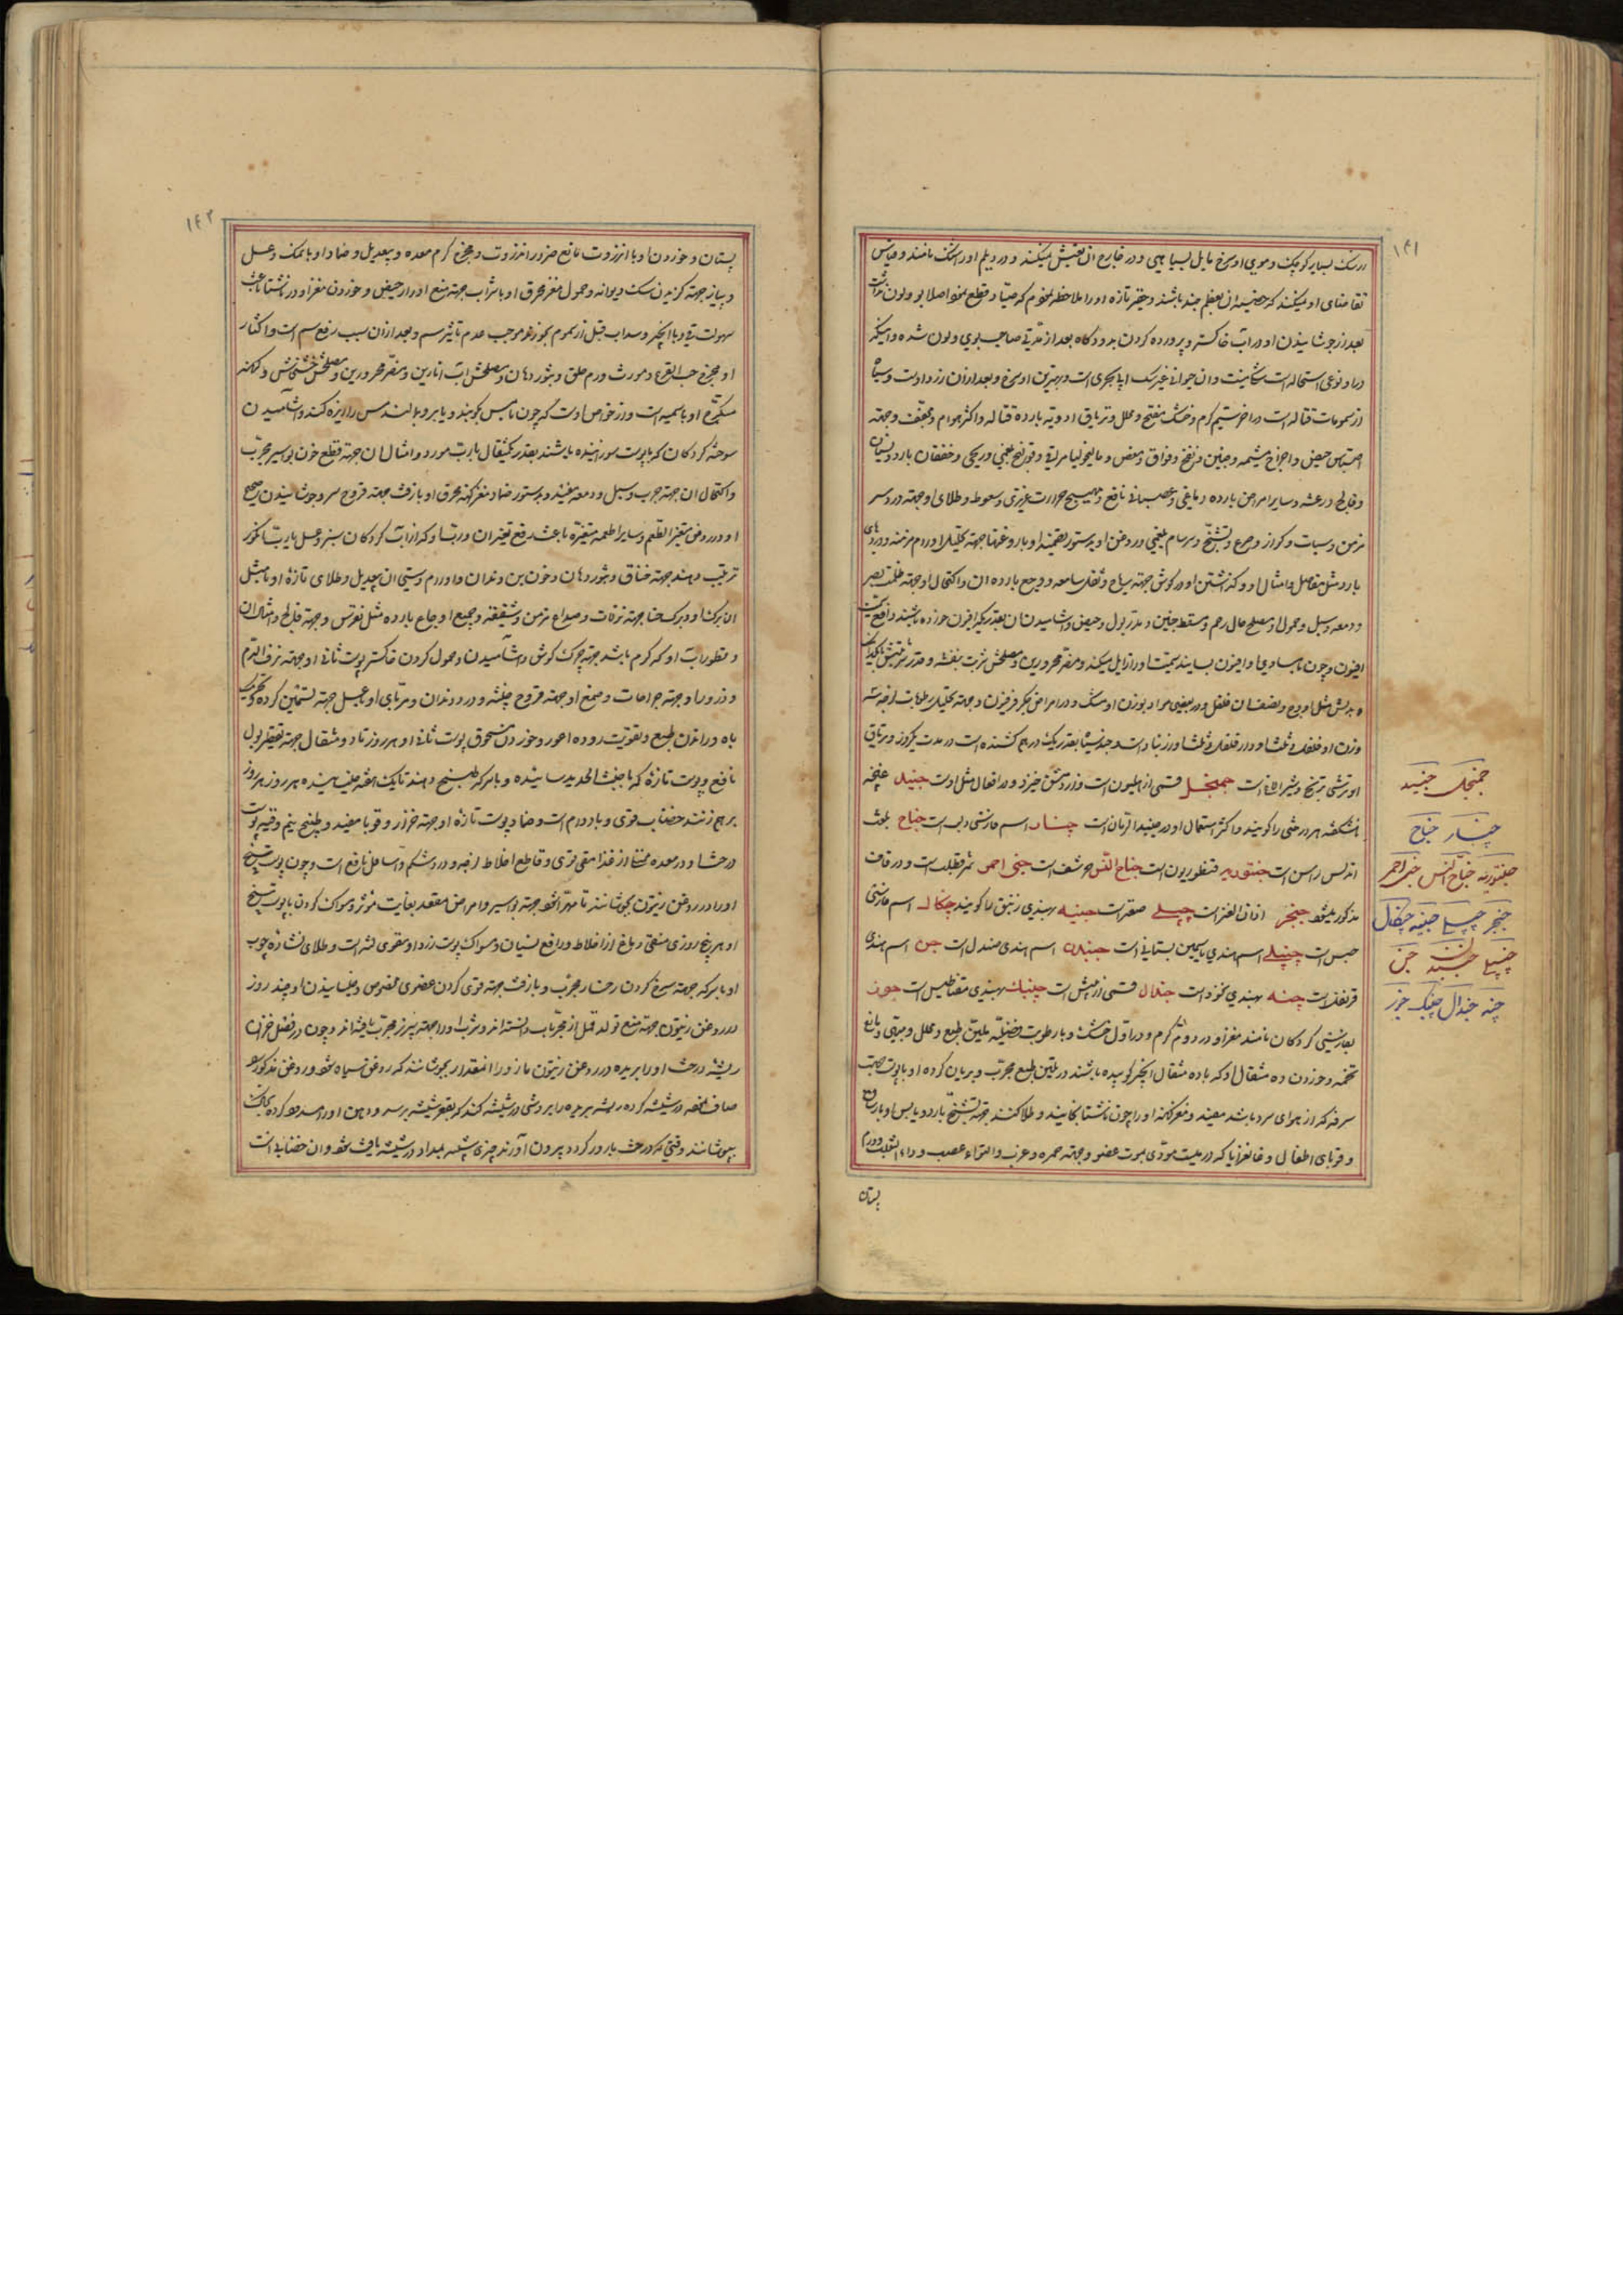 ۱۴۱
از سگ بسیار کوچک و موی او سرخ مایل بسیاهی و در خارج آن تعیش میکند و در دیلم او را شنک نامند و قیاس
تقاضای او میکند که خصیه آن بعظم جند باشد و حقیر تازه او را ملاحظه نمودم که صیاد قطع نمود اصلا بو و لون نداشت
بعد از جوشانیدن او در آب خاکستر و پرورده کردن بدود کاه بعد از مدتی صاحب بوی و لون شده
از سمومات قتاله است در آخر سیم گرم و خشک مفتح و محلل و تریاق ادویه بارده قتاله و اکثر هوام و مجفف و جهته
احتباس حیض و اخراج مشیمه و جنین و نفخ و فواق و مغص و مالیخولیا مراقی و قولنج بلغمی و ریحی و خفقان بارد و نسیان
و فالج و رعشه و سایر امراض بارده دماغی و عصبانی نافع و مهیج حرارت غریزی و سعوط و طلای او جهته درد سر
مزمن و سبات و کزاز و صرع و تشنج و سرسام بلغمی و روغن او بدستور و تضمید او با روغنها جهته تحلیل اورام مزمنه و دردهای
بارد مثل مفاصل و امثال او و گذاشتن او در گوش جهته ریاح و ثقل سامعه و وجع بارده آن و اکتحال او جهته ظلمت بصر
و دمعه و سبل و حمول او مصلح حال رحم و مسقط جنین و مدر بول و حیض و آشامیدن آن بقدریکه افیون خورده باشند دافع سمیت
افیون و چون با مساوی او افیون بسایند سمیت او را زایل میکند و مضر محرورین و مصلحش شربت بنفشه و قدر شربتش تا یکدانک
و بدلش مثل او وج و نصف آن فلفل و در بعضی مواد بوزن او مشک و در امراض دیگر فرفیون و جهته تحلیل رطوبات لزجه سه
وزن او فلفل و ثلث او دارفلفل و ثلث او زرنباد است و جند سیاه بقدر یک درهم کشنده است در مدت یکروز و تریاق
او ترشی ترنج و شیر الاغ است جمنجل قسمی از هلیون است و از دمشق خیزد و در افعال مثل اوست جنبد غنچه
نشکفته هر درختی را گویند و اکثر استعمال او در جنبد الرمان است چنار اسم فارسی دلب است جناح بلغت
اندلس راسن است جنتوریه قنطوریون است جناح النسر حرشف است جنی احمر ثمر قطلب است و در قاف
مذکور میشود جنجر اذان العنز است چنبلی صعتر است جنبه بهندی زنبق را گویند چنکال اسم فارسی
حسن است چنپلی اسم هندی یاسمین بستانی است جندن اسم هندی صندل است جن اسم هندی
قرنفل است چنه بهندی نخود است جندال قسمی از میش است چنبک بهندی مغناطیس است جوز
بفارسی گردکان نامند مغز او در دوم گرم و در اول خشک و با رطوبت فضلیه ملین طبع و محلل و مبهی و مانع
تخمه و خوردن ده مثقال او که با ده مثقال انجیر کوبیده باشند در تلیین طبع مجرب و بریان کرده او با پوست جهت
سرفه که از هوای سرد باشد مفید و مغز کهنه او را چون ناشتا بخایند و طلا کنند جهته تشنج بارد و یابس
و قوبای اطفال و غانغرایا که در میت مؤدی بموت عضو و جهته حمره و غرب و التواء عصب و داء الثعلب و ورم
پستان
جمنجل جنبد
چنار جناح
جنتوریه جناح النسر جنی احمر
جنجر چنبلی جنبه چنکال
چنپلی جندن جن
چنه جندال چنبک جوز
۱۴۲
پستان و خوردن او با انزروت مانع ضرر انزروت و مخرج کرم معده و بیعدیل و ضماد او با نمک و عسل
و پیاز جهته گزیدن سگ دیوانه و حمول مغز محرق او با شراب جهته منع ادرار حیض و خوردن مغز او در ناشتا باعث
سهولت قی و با انجیر و سداب قبل از سموم بخورند موجب عدم تاثیر سم و بعد از آن سبب رفع سم است و اکثار
او مخرج حب القرع و مورث ورم حلق و بثور دهان و مصلحش آب انارین و مضر محرورین و مصلحش خشخاش و کهنه
متکرج او با سمیه است و از خواص اوست که چون با مس کوبند و یا برو بمالند مس را ریزه کند و آشامیدن
سوخته گردکان که با پوست سوزانیده باشند بقدر یکمثقال با رب مورد و امثال آن جهته قطع خون بواسیر مجرب
و اکتحال آن جهته جرب و سبل و دمعه مفید و بدستور ضماد مغز کهنه محرق او با زفت جهته قروح سر و جوشانیدن صحیح
او در روغن متغیر الطعم و سایر اطعمه متغیره باعث رفع تغیر آن و رب او که از آب گردکان سبز و عسل یا رب انگور
ترتیب دهند جهته خناق و بثور دهان و خون بن دندان و اورام و سستی آن بیعدیل و طلای تازه او با مثل
آن برگ او و برگ حنا جهته نزلات و صداع مزمن و شقیقه و جمیع اوجاع بارده مثل نقرس و جهته فالج و امثال آن
و قطور آب او که گرم باشد جهته چرک گوش و آشامیدن و حمول کردن خاکستر پوست ثانی او جهته نزف الدم
و ذرور او جهته جراحات و صمغ او جهته قروح خبیثه و درد دندان و مربای او با عسل جهته تسخین گرده و تحریک
باه و راندن طبع و تقویت روده اعور و خوردن مسحوق پوست ثانی او هر روز تا دو مثقال جهته تقطیر بول
نافع و پوست تازه که با خبث الحدید سائیده و با سرکه طبخ دهند تا یک هفته بخیسانیده هر روز
برهم زنند خضاب قوی و بادوام است و ضماد پوست تازه او جهته خزاز و قوبا مفید و طبیخ نیم وقیه پوست
درخت او در معده ممتلی از غذا مقی قوی و قاطع اخلاط لزجه و درد شکم و اسهال نافع است و چون پوست بیخ
او را در روغن زیتون بجوشانند تا مهرا شود جهته بواسیر و امراض مقعد بغایت مؤثر و مسواک کردن با پوست بیخ
او هر پنج روزی منقی دماغ از اخلاط و رافع نسیان و مسواک پوست زرد او مقوی لثه است و طلای نشاره چوب
او با سرکه جهته سرخ کردن رخسار مجرب و با زفت جهته قوی کردن عضوی مخصوص و خیسانیدن او چند روز
در روغن زیتون جهته منع تولد قمل از مجربات دانسته اند و شراب او را جهته سپرز مجرب یافته اند و چون در فصل خزان
ریشه درخت او را بریده در روغن زیتون مازو را آنمقدار بجوشانند که روغن سیاه شود و روغن مذکور
صاف نموده در شیشه کرده ریشه بریده را بروشی در شیشه کنند که بقعر شیشه برسد و دهن او را مسدود کرده بخاک
بپوشانند و وقتیکه درخت بارور گردد بیرون آورند چیزی شبیه بمداد در شیشه یافت شود و آن خضابی است